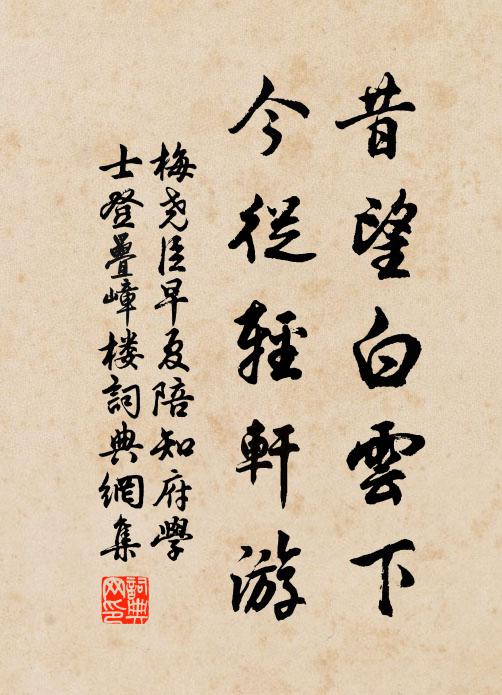 昔望白雲下
今從輕軒游
梅堯臣早夏陪知府學
士登疊嶂楼詞典網集
詞典网印